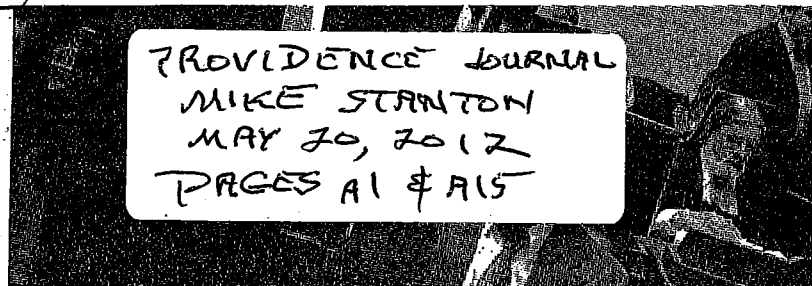 PROVIDENCE JOURNAL
MIKE STANTON
MAY 20, 2012
PAGES A1 & A15